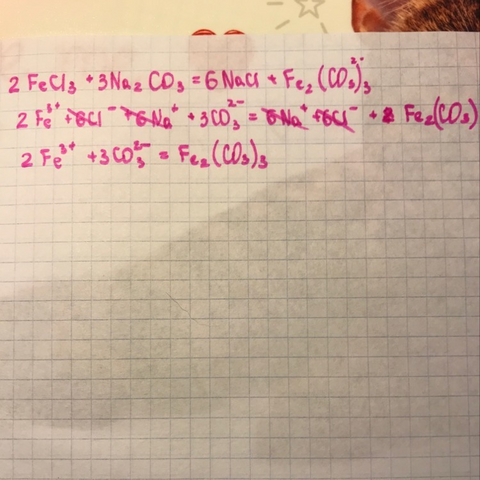 2 FeCl₃ + 3Na₂CO₃ = 6NaCl + Fe₂(CO₃)₃²⁻
2 Fe³⁺ + 6Cl⁻ + 6Na⁺ + 3CO₃²⁻ = 6Na⁺ + 6Cl⁻ + Fe₂(CO₃)
2 Fe³⁺ + 3CO₃²⁻ = Fe₂(CO₃)₃